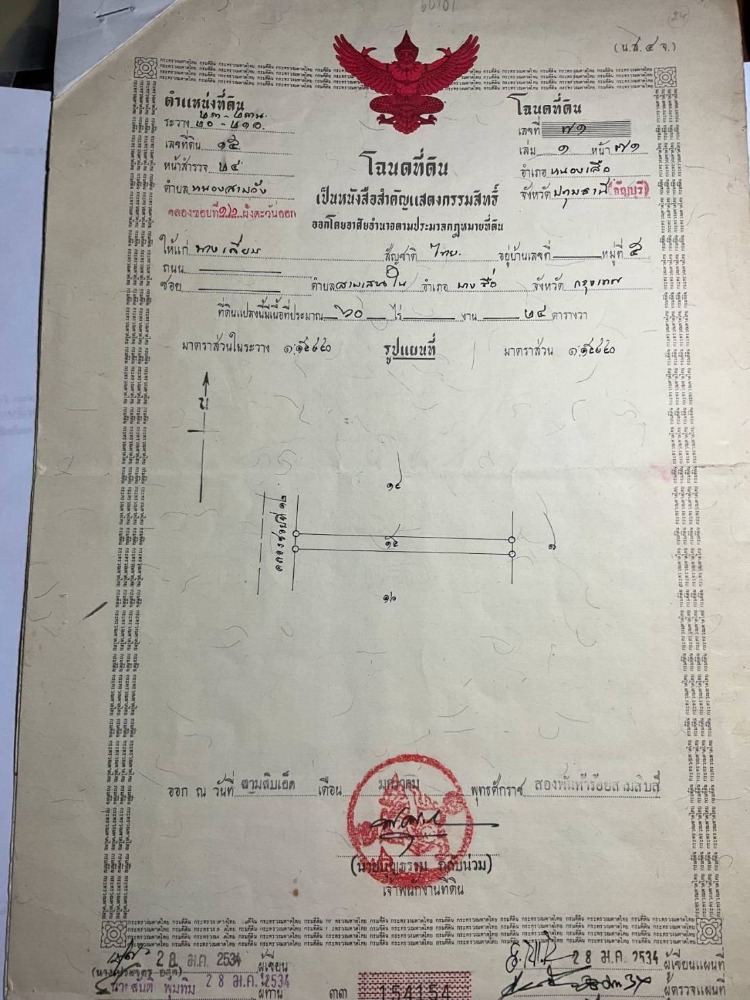 (น.ส.๔ จ.)
ตำแหน่งที่ดิน
ระวาง ๒๐-๒๑๐
เลขที่ดิน ๑๕
หน้าสำรวจ ๒๔
ตำบล หนองสามวัง
คลองซอยที่ ๑๒ ฝั่งตะวันออก
โฉนดที่ดิน
เลขที่ ๗๑
เล่ม ๑ หน้า ๗๑
อำเภอ หนองเสือ
จังหวัด ปทุมธานี (ธัญบุรี)
โฉนดที่ดิน
เป็นหนังสือสำคัญแสดงกรรมสิทธิ์
ออกโดยอาศัยอำนาจตามประมวลกฎหมายที่ดิน
ให้แก่ นาง สัญชาติ ไทย อยู่บ้านเลขที่ หมู่ที่ ๕
ถนน
ซอย ตำบล สามเสนใน อำเภอ บางซื่อ จังหวัด กรุงเทพ
ที่ดินแปลงนี้มีเนื้อที่ประมาณ ๖๐ ไร่ งาน ๒๔ ตารางวา
มาตราส่วนในระวาง รูปแผนที่ มาตราส่วน
น
๑๔
คลองซอยที่ ๑๒
๑๕
๑๖
ออก ณ วันที่ สามสิบเอ็ด เดือน มกราคม พุทธศักราช สองพันห้าร้อยสามสิบสี่
เจ้าพนักงานที่ดิน
2 8 ม.ค. 2534 ผู้เขียน
2 8 ม.ค. 2534 ผู้เขียนแผนที่
นายสันติ พุ่มทิม 2 8 ม.ค. 2534 ผู้ทาน
ผู้ตรวจแผนที่
154154